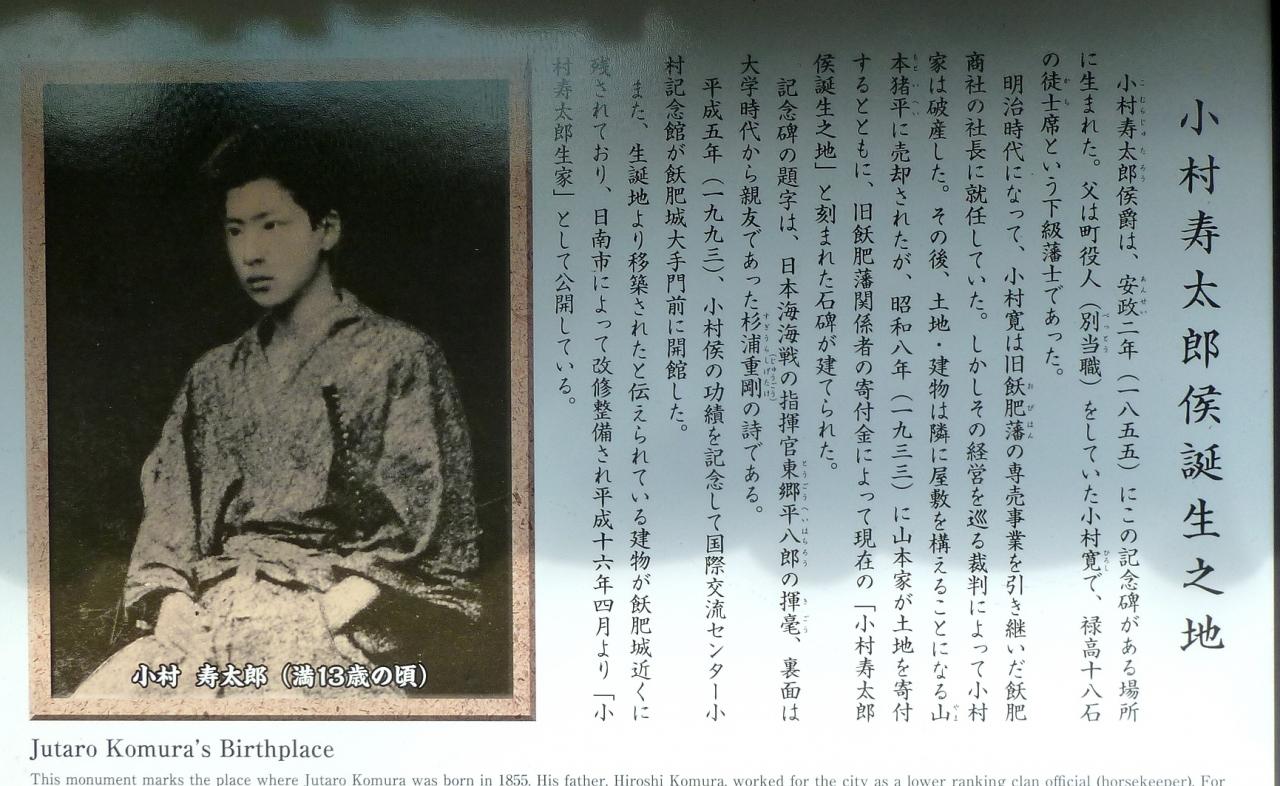 小村寿太郎侯誕生之地
小村寿太郎侯爵は、安政二年（一八五五）にこの記念碑がある場所
に生まれた。父は町役人（別当職）をしていた小村寛で、禄高十八石
の徒士席という下級藩士であった。
明治時代になって、小村寛は旧飫肥藩の専売事業を引き継いだ飫肥
商社の社長に就任していた。しかしその経営を巡る裁判によって小村
家は破産した。その後、土地・建物は隣に屋敷を構えることになる山
本猪平に売却されたが、昭和八年（一九三三）に山本家が土地を寄付
するとともに、旧飫肥藩関係者の寄付金によって現在の「小村寿太郎
侯誕生之地」と刻まれた石碑が建てられた。
記念碑の題字は、日本海海戦の指揮官東郷平八郎の揮毫、裏面は
大学時代から親友であった杉浦重剛の詩である。
平成五年（一九九三）、小村侯の功績を記念して国際交流センター小
村記念館が飫肥城大手門前に開館した。
また、生誕地より移築されたと伝えられている建物が飫肥城近くに
残されており、日南市によって改修整備され平成十六年四月より「小
村寿太郎生家」として公開している。
小村 寿太郎（満13歳の頃）
Jutaro Komura's Birthplace
This monument marks the place where Jutaro Komura was born in 1855. His father, Hiroshi Komura, worked for the city as a lower ranking clan official (horsekeeper). For